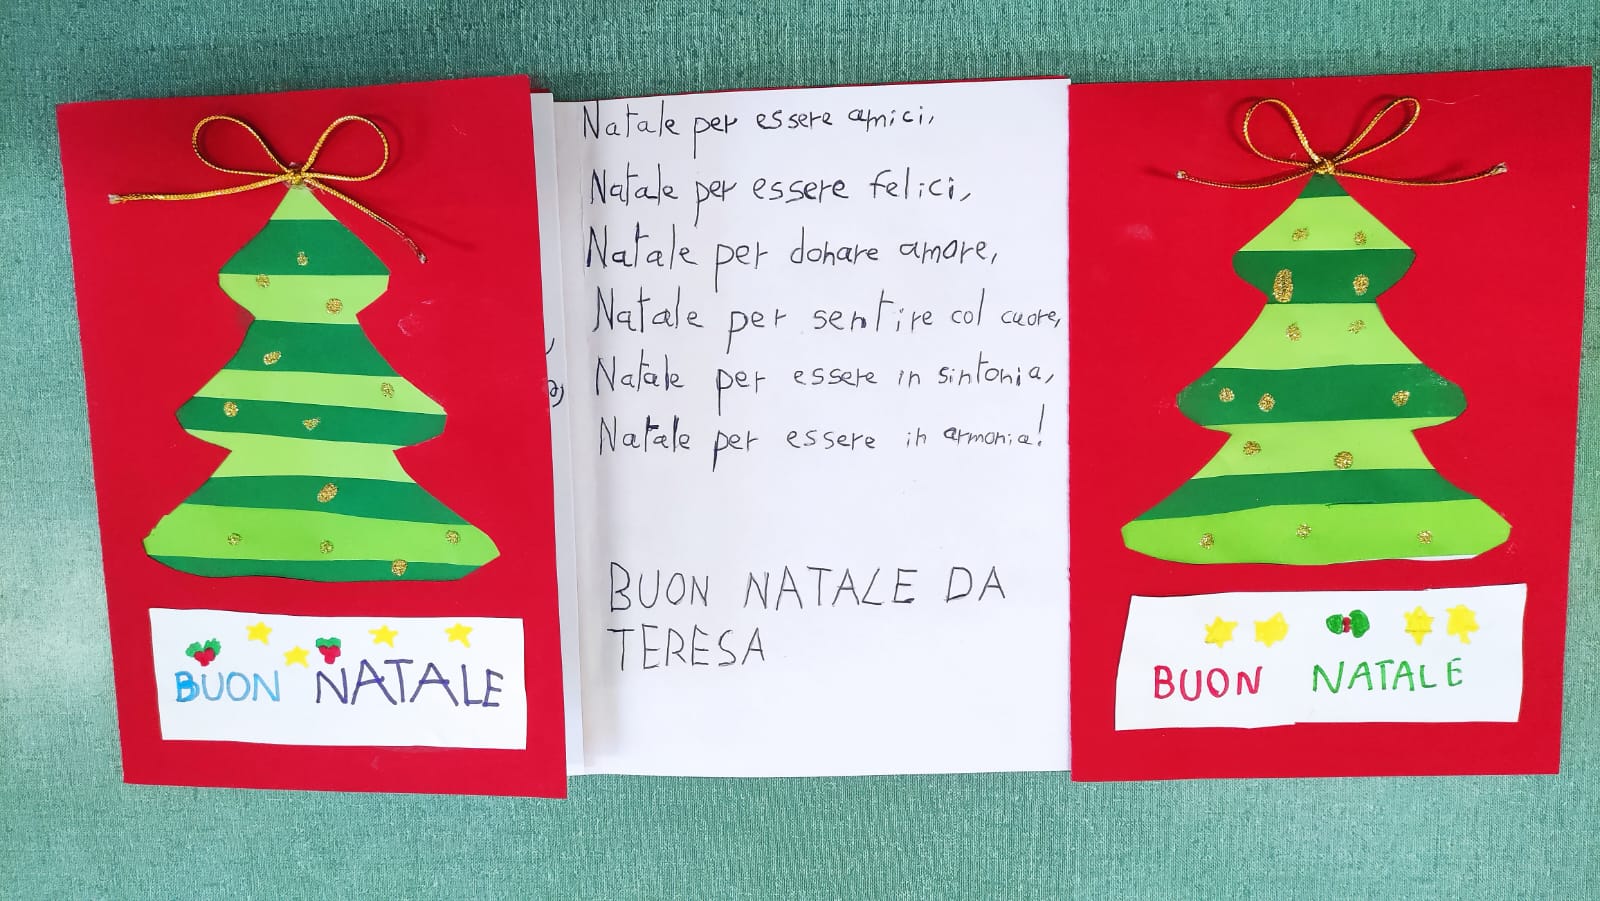 Natale per essere amici,
Natale per essere felici,
Natale per donare amore,
Natale per sentire col cuore,
Natale per essere in sintonia,
Natale per essere in armonia!
BUON NATALE DA
TERESA
BUON NATALE
BUON NATALE